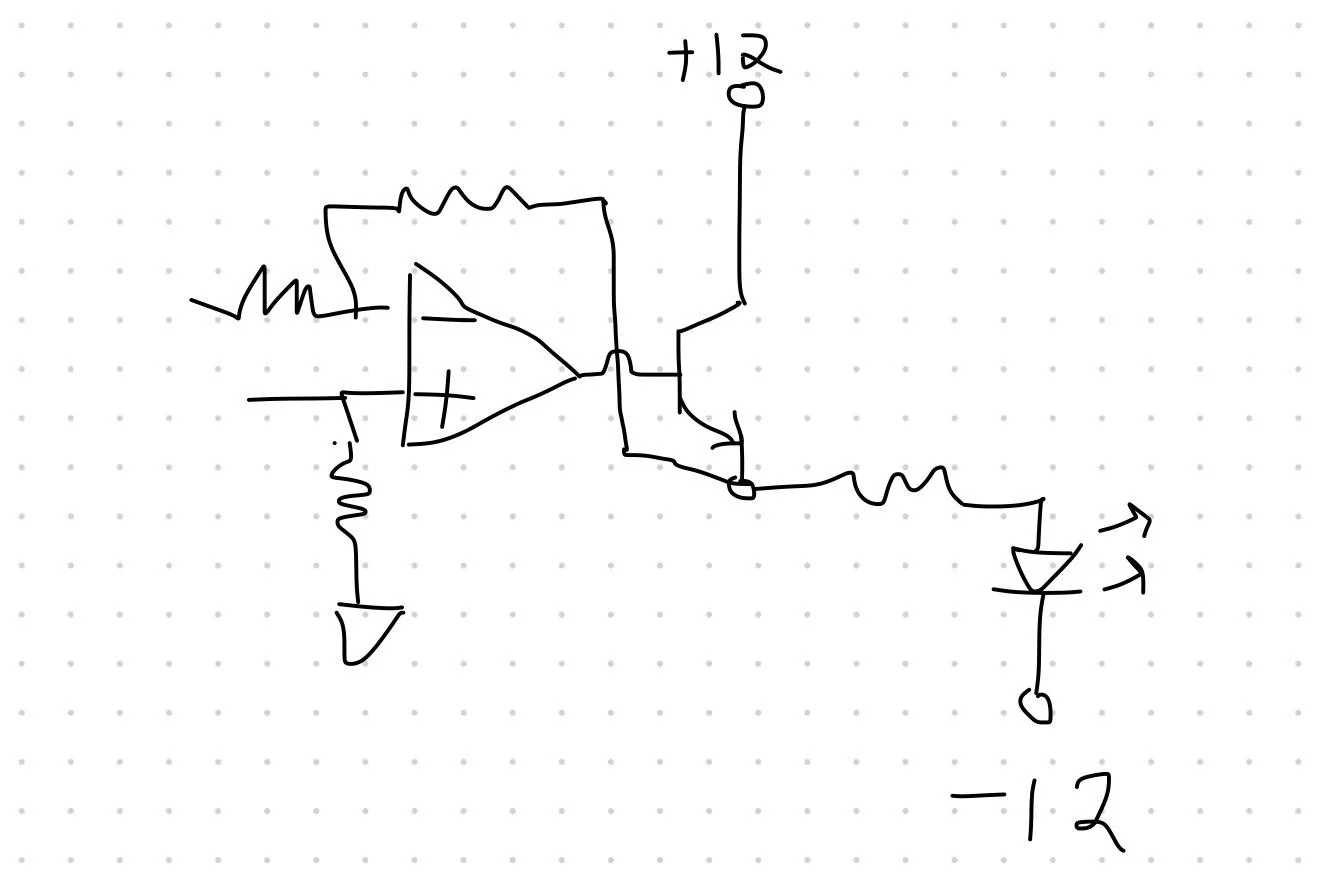 +12
−
+
−12